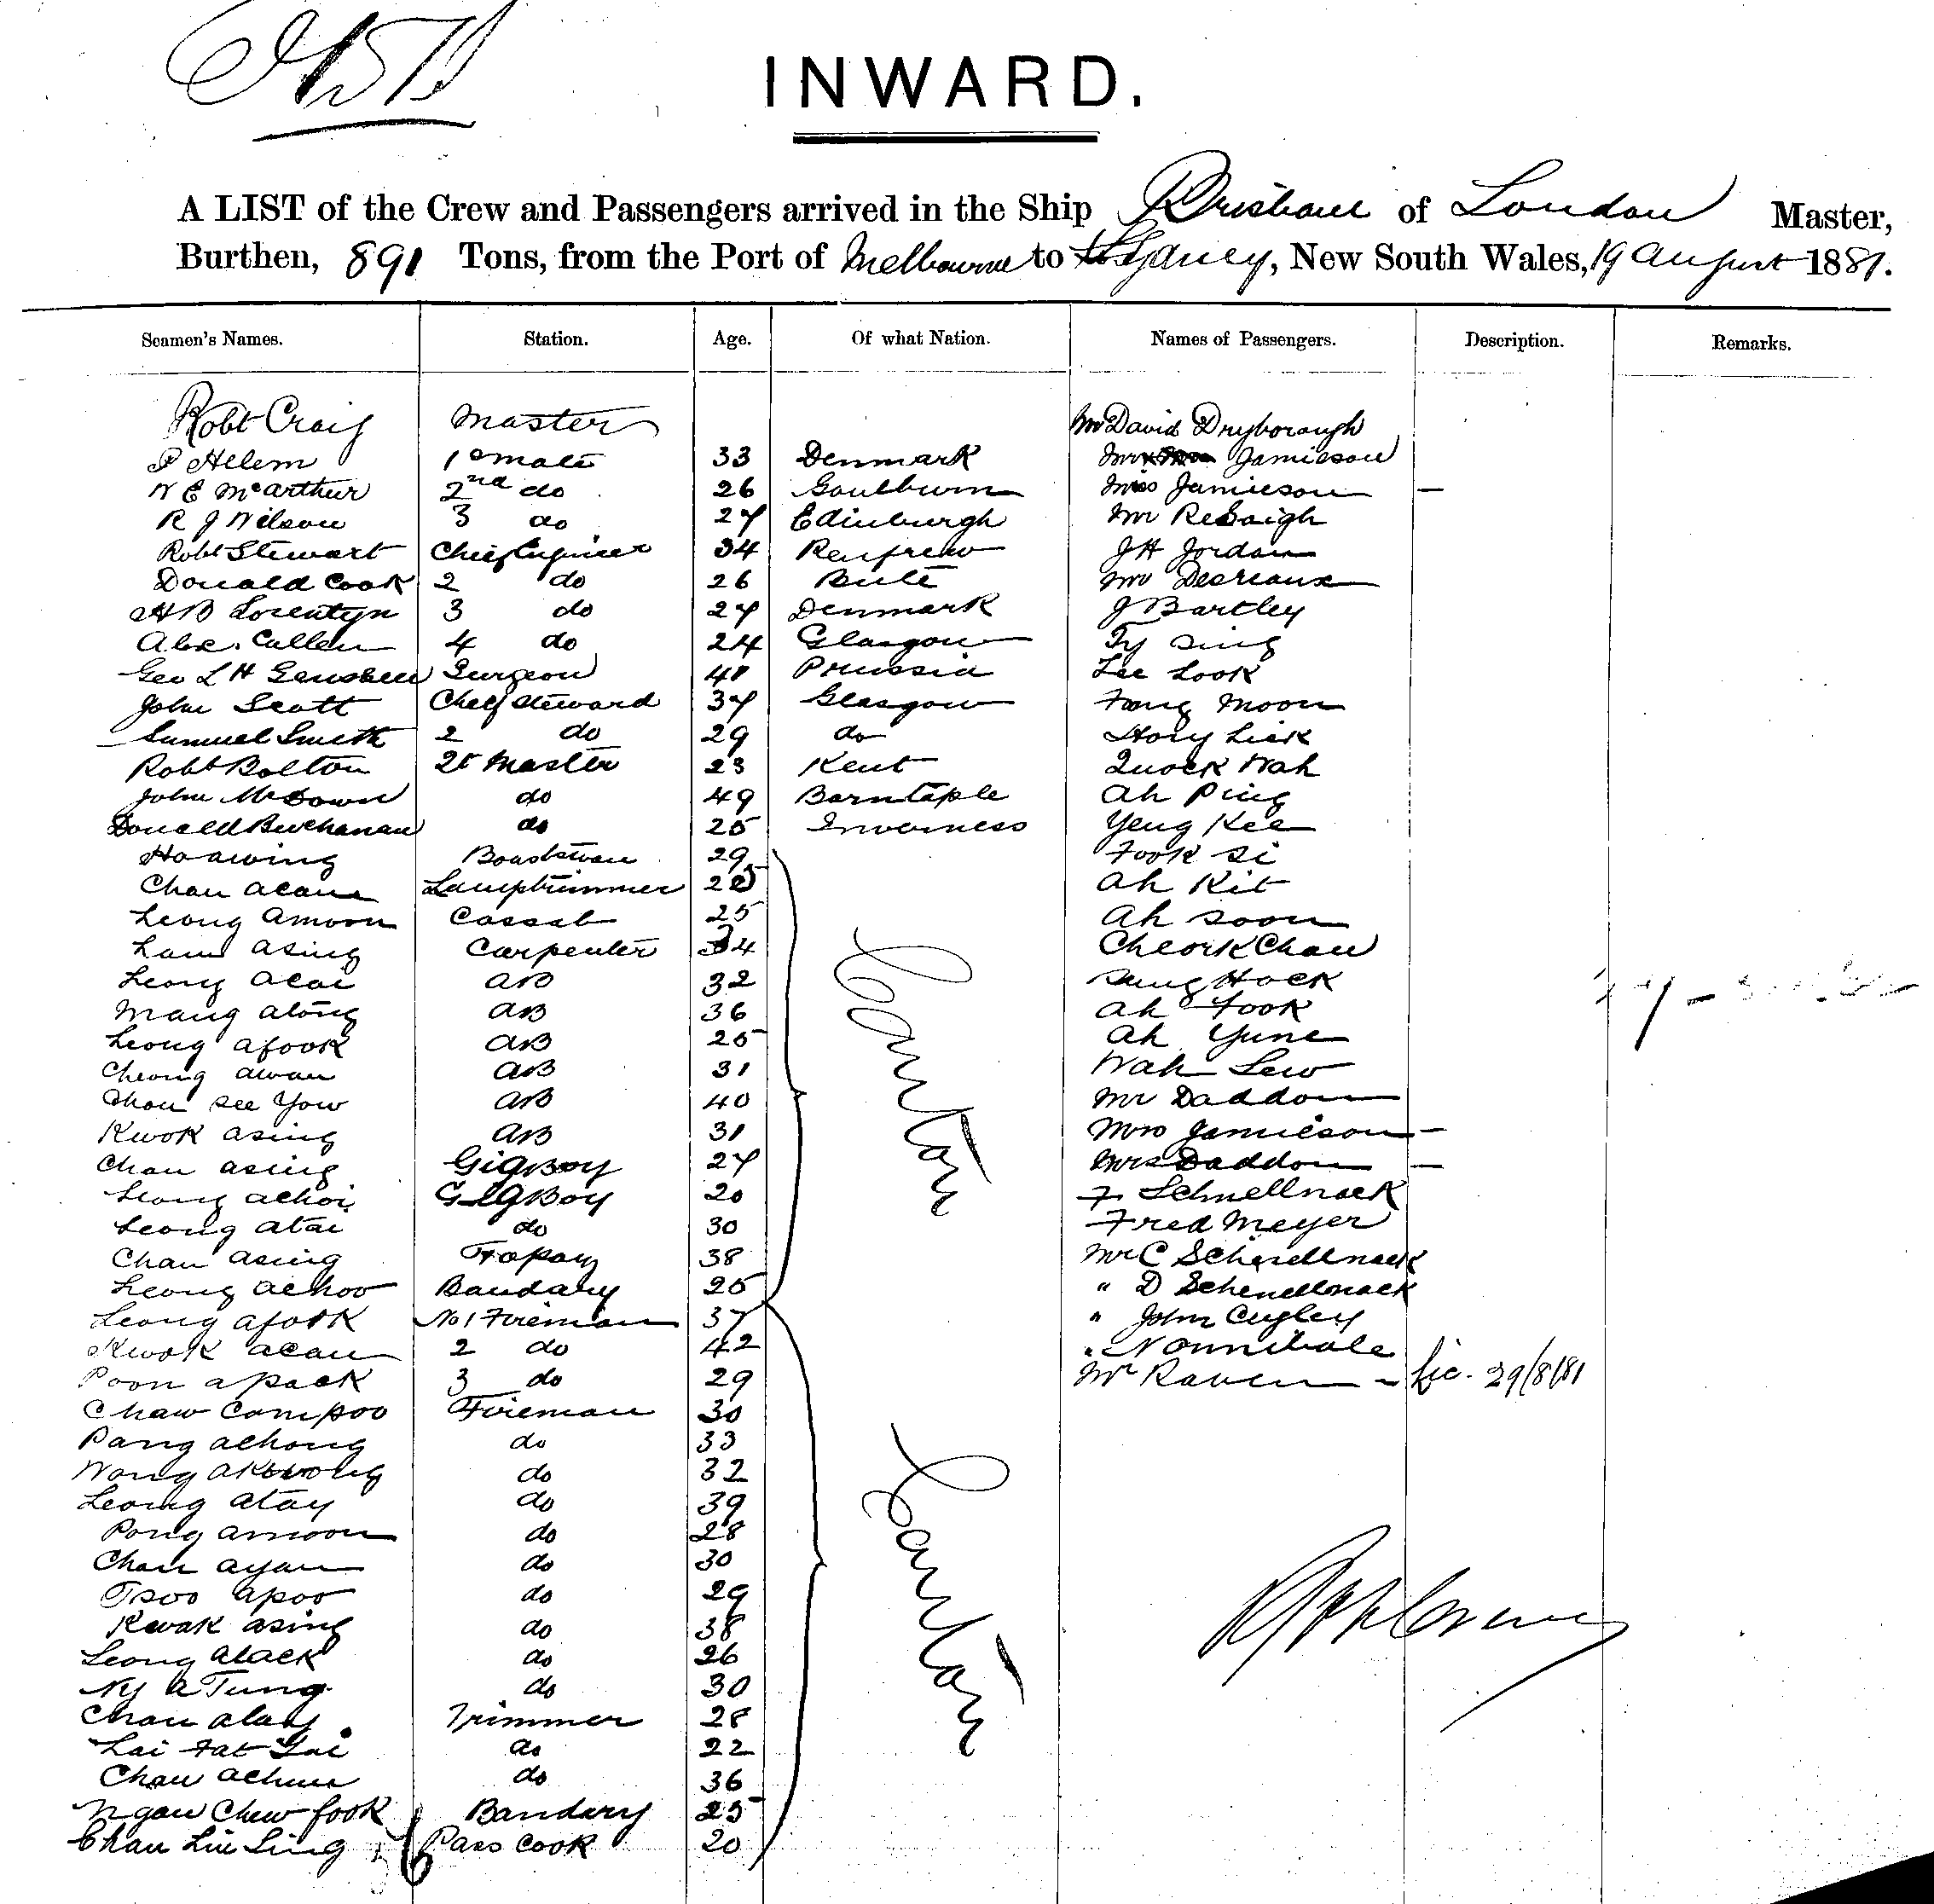 INWARD.
A LIST of the Crew and Passengers arrived in the Ship Brisbane of London Master,
Burthen, 891 Tons, from the Port of Melbourne to Sydney, New South Wales, 19 August 1881.
Seamen's Names. Station. Age. Of what Nation. Names of Passengers. Description. Remarks.
Robt Craig Master Mr David Dryborough
P Helem 1st mate 33 Denmark Mr Jamieson
W E McArthur 2nd do 26 Goulburn Miss Jamieson —
R J Wilson 3 do 27 Edinburgh Mr
Robt Stewart Chief Engineer 34 Renfrew J H Jordan
Donald Cook 2 do 26 Bute Mr Desreaux
H B Lorentyn 3 do 27 Denmark J Bartley
Alex. Cullen 4 do 24 Glasgow Ty Sing
Geo L H Surgeon 41 Prussia Lee Look
John Scott Chef Steward 37 Glasgow Fong Moon
Samuel Smith 2 do 29 do Hory Lick
Robt Bolton Qt Master 23 Kent Quock Wah
John McGown do 49 Barntaple Ah Ping
Donald Buchanan do 25 Inverness Yeng Kee
Ho awing Boadstwan 29 Fook Si
Chan acan Lamptrimmer 25 Ah Kit
Leong amoon Cassab 25 Ah Soon
Lam asing Carpenter 34 Cheork Chau
Leong acai AB 32 Sang Hock
Mang along AB 36 Ah Fook
Leong afook AB 25 Ah Yune
Cheong awan AB 31 Wah Lew
Chou See Yow AB 40 Mr Daddon
Kwok asing AB 31 Mrs Jamieson —
Chan asing Gigboy 27 Mrs Daddon —
Leong achoi Gigboy 20 F. Schnellnack
Leong atai do 30 Fred Meyer
Chan asing Topaz 38 Mr C Schnellnack
Leong achoo Bandary 25 " D Schenellnack
Canton
Leong afook No 1 Fireman 37 " John Cugley
Kwok acan 2 do 42 " Nonnibale
Poon apack 3 do 29 Mr Raven - Lic. 29/8/81
Chaw Compoo Fireman 30
Pang achong do 33
Wong akwong do 32
Leong atay do 39
Pong amoon do 28
Chan ayan do 30
Tsoo apoo do 29
Kwak asing do 38
Leong alack do 26
Ny a Tung do 30
Chan alay Trimmer 28
Lai Fat Loi do 22
Chan achun do 36
Ngan Chew fook Bandary 25
Chan Lin Ling Pass Cook 20
Canton